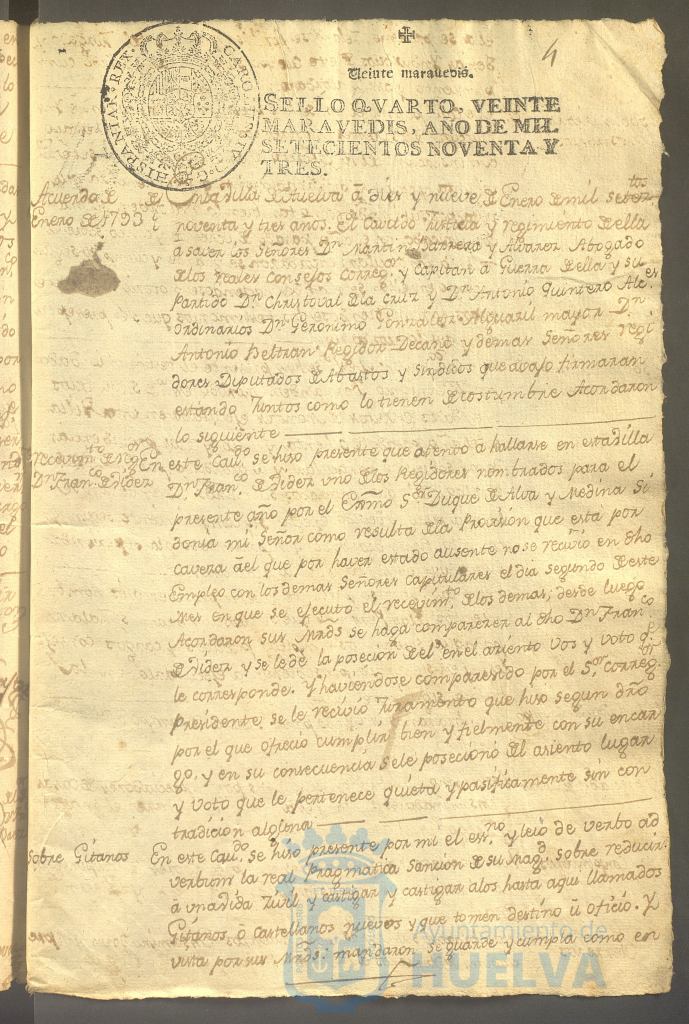 4
Veinte marauedis.
SELLO QVARTO, VEINTE
MARAVEDIS, AÑO DE MIL
SETECIENTOS NOVENTA Y
TRES.
CAROLUS IV D G HISPANIAR REX
Acuerdo de
Enero de 1793
En la Villa de Huelva a dies y nueve de Enero de mil setetos
noventa y tres años. El Cavildo Justicia y regimiento de ella
a saver los Señores Dn Martin Barrera y Alvarez Abogado
de los reales consejos Corregor y Capitan a Guerra de ella y su
Partido Dn Christoval de la Cruz y Dn Antonio Quintero Alces
ordinarios Dn Geronimo Gonzalez Alguazil mayor Dn
Antonio Beltran Regidor Decano y demas Señores regi
dores Diputados de Abastos y Sindicos que avajo firmaran
estando Juntos como lo tienen de costumbre Acordaron
lo siguiente
Dn Franco de Nider
En este Cavdo se hiso presente que atento a hallarse en esta Villa
Dn Franco de Nider uno de los Regidores nombrados para el
presente año por el Exmo Sor Duque de Alva y Medina Si
donia mi Señor como resulta de la Provision que esta por
cavera del que por haver estado ausente no se recivio en dho
Empleo con los demas Señores capitulares el dia segundo de este
Mes en que se efecuto el recevimto de los demas, desde luego
Acordaron sus Mrds se haga comparecer al dho Dn Franco
de Nider y se le dé la posecion de el en el asiento vos y voto qe
le corresponde. Y haviendose comparesido por el Sor Corregor
Presidente se le recivio Juramento que hiso segun dro
por el que ofrecio cumplir bien y fielmente con su encar
go, y en su consecuencia se le posecionó del asiento lugar
y voto que le pertenece quieta y pasificamente sin con
tradicion alguna
Sobre Gitanos
En este Cavdo se hiso presente por mi el essno y leio de verbo ad
verbum la real Pragmatica Sancion de su Magd sobre reducir
a una vida Zivil y castigar y castigar a los hasta aqui llamados
Gitanos, o Castellanos nuevos y que tomen destino u oficio. Y
vista por sus Mrds mandaron se guarde y cumpla como en
Ayuntamiento de
HUELVA